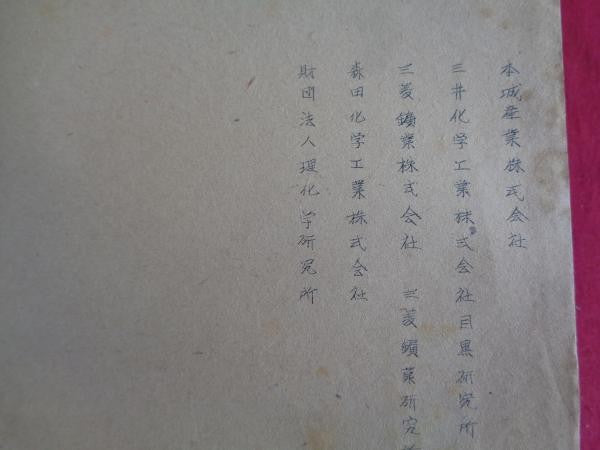 本城産業株式会社
三井化学工業株式会社目黒研究所
三菱鑛業株式会社 三菱鑛業研究所
森田化学工業株式会社
財団法人理化学研究所